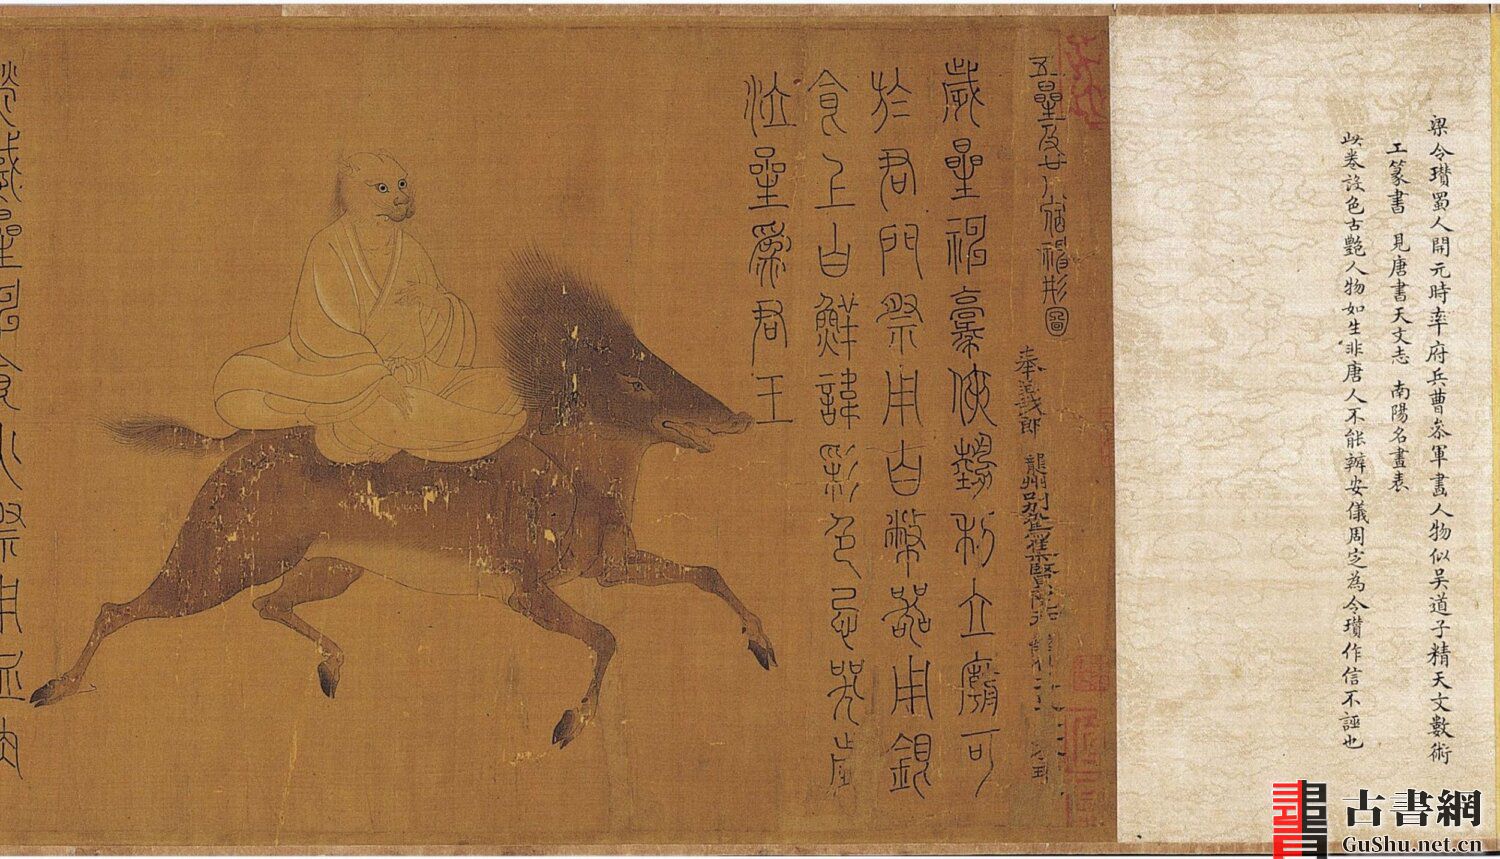 梁令瓚蜀人開元時率府兵曹叅軍畫人物似吴道子精天文數術
工篆書 見唐書天文志 南陽名畫表
此卷設色古艷人物如生非唐人不能辦安儀周定為令瓚作信不誣也
五星及廿八宿神形圖
奉義郎 隴州別駕集賢院待
歲星神豪俠勢利立廟可
於君門祭用白幣器用銀
食上白鮮諱彩色忌哭歲
泣星為君王
古書網
GuShu.net.cn